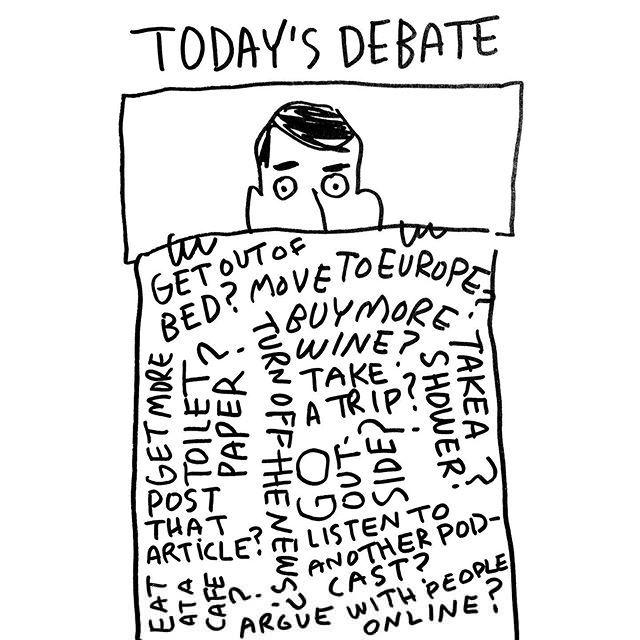 TODAY'S DEBATE
GET OUT OF
BED?
MOVE TO EUROPE?
BUY MORE
WINE?
TAKE
A TRIP?
TAKE A
SHOWER?
TURN OFF THE NEWS?
GET MORE
TOILET
PAPER?
GO
OUT-
SIDE?
POST
THAT
ARTICLE?
LISTEN TO
ANOTHER POD-
CAST?
EAT
AT A
CAFE
?
ARGUE WITH PEOPLE
ONLINE?